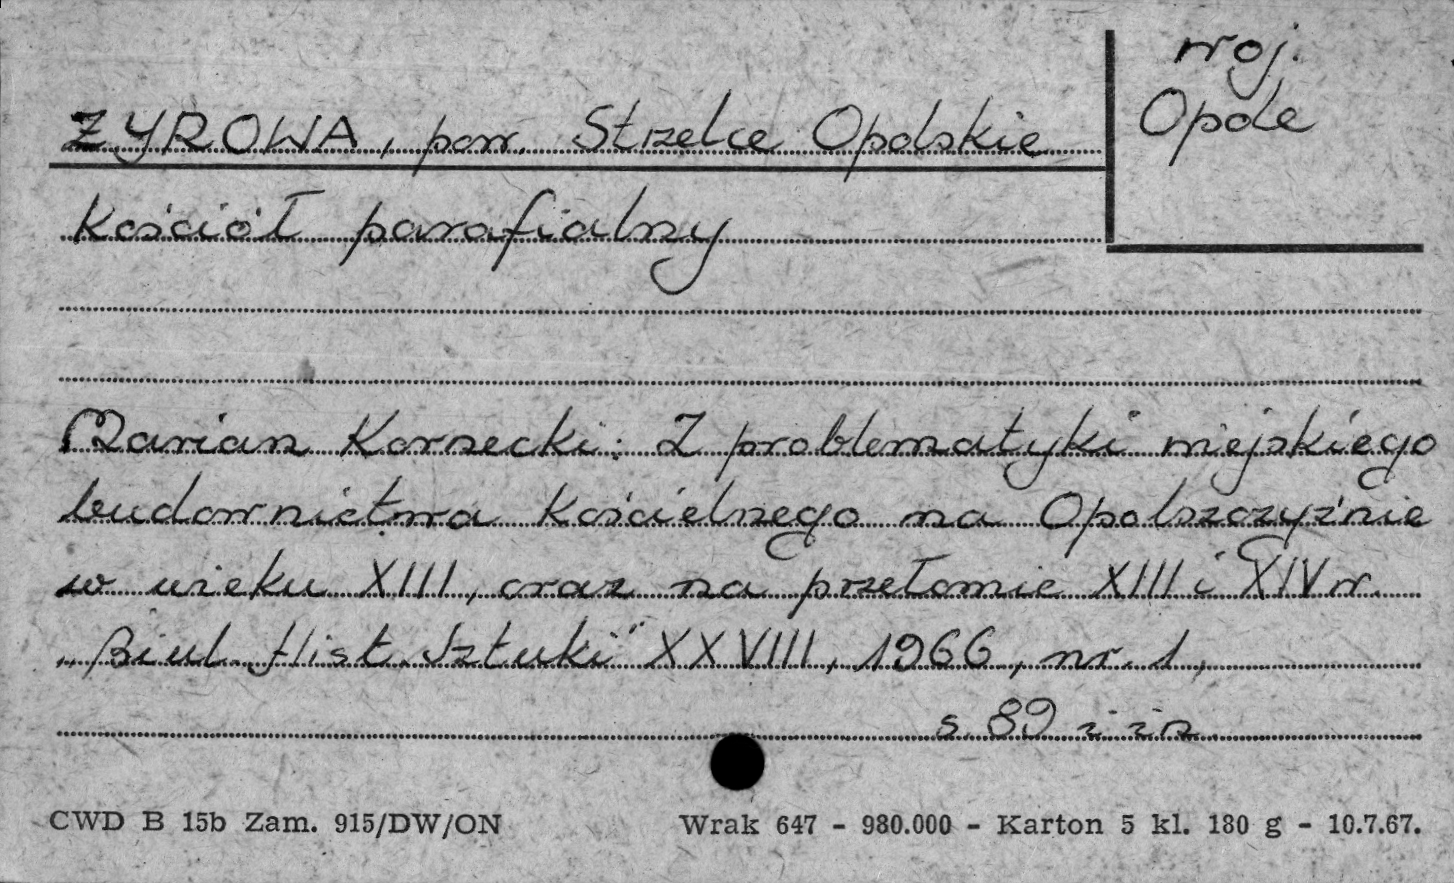 woj.
Opole
ŻYROWA, pow. Strzelce Opolskie
Kościół parafialny
Marian Kornecki: Z problematyki miejskiego
budownictwa kościelnego na Opolszczyźnie
w wieku XIII, oraz na przełomie XIII i XIV w.
„Biul. Hist. Sztuki" XXVIII, 1966, nr. 1,
s. 89 i in.
CWD B 15b Zam. 915/DW/ON Wrak 647 - 980.000 - Karton 5 kl. 180 g - 10.7.67.